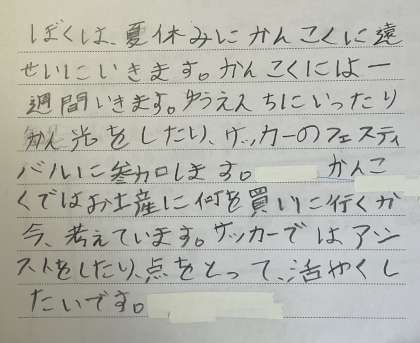 ぼくは、夏休みにかんこくに遠
せいにいきます。かんこくには一
週間いきます。ゆうえんちにいったり
かん光をしたり、サッカーのフェスティ
バルに参加します。 かんこ
くではお土産に何を買いに行くか
今、考えています。サッカーではアシ
ストをしたり、点をとって、活やくし
たいです。